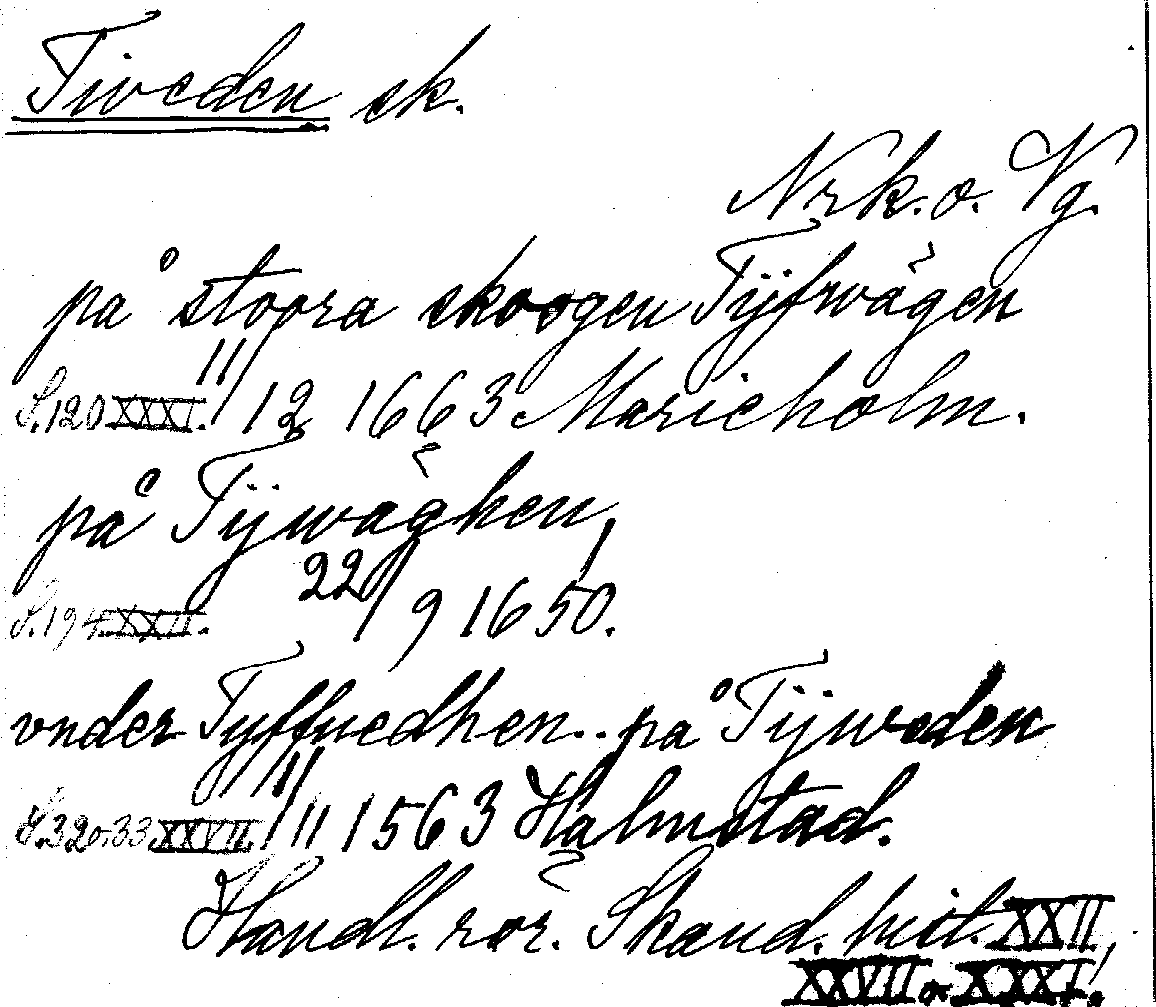 Tiveden sk.
Nrk. o. Vg.
på stoora skoogen Tÿfwägen
S. 120 XXXI. 11/12 1663 Marieholm.
på Tÿwäghen,
S. 194 XXII. 22/9 1650.
vnder Tyffuedhen.. på Tÿweden
S. 32 o. 33 XXVII. 11/11 1563 Halmstad.
Handl. rör. Skand. hist. XXII,
XXVII o. XXXI.